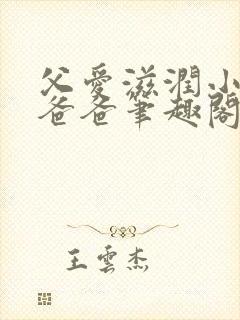 父愛滋潤小
爸爸筆趣閣
王雲杰